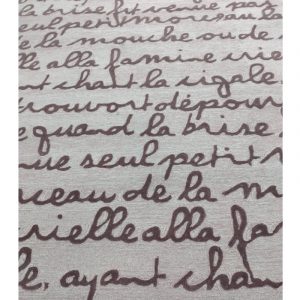 la brise fut venue pas
seul petit morceau
de la mouche ou de
elle alla famine crie
ant chant la cigale
trouvort dépour
e quand la brise
nue seul petit m
ceau de la m
rielle alla fa
le, ayant chan